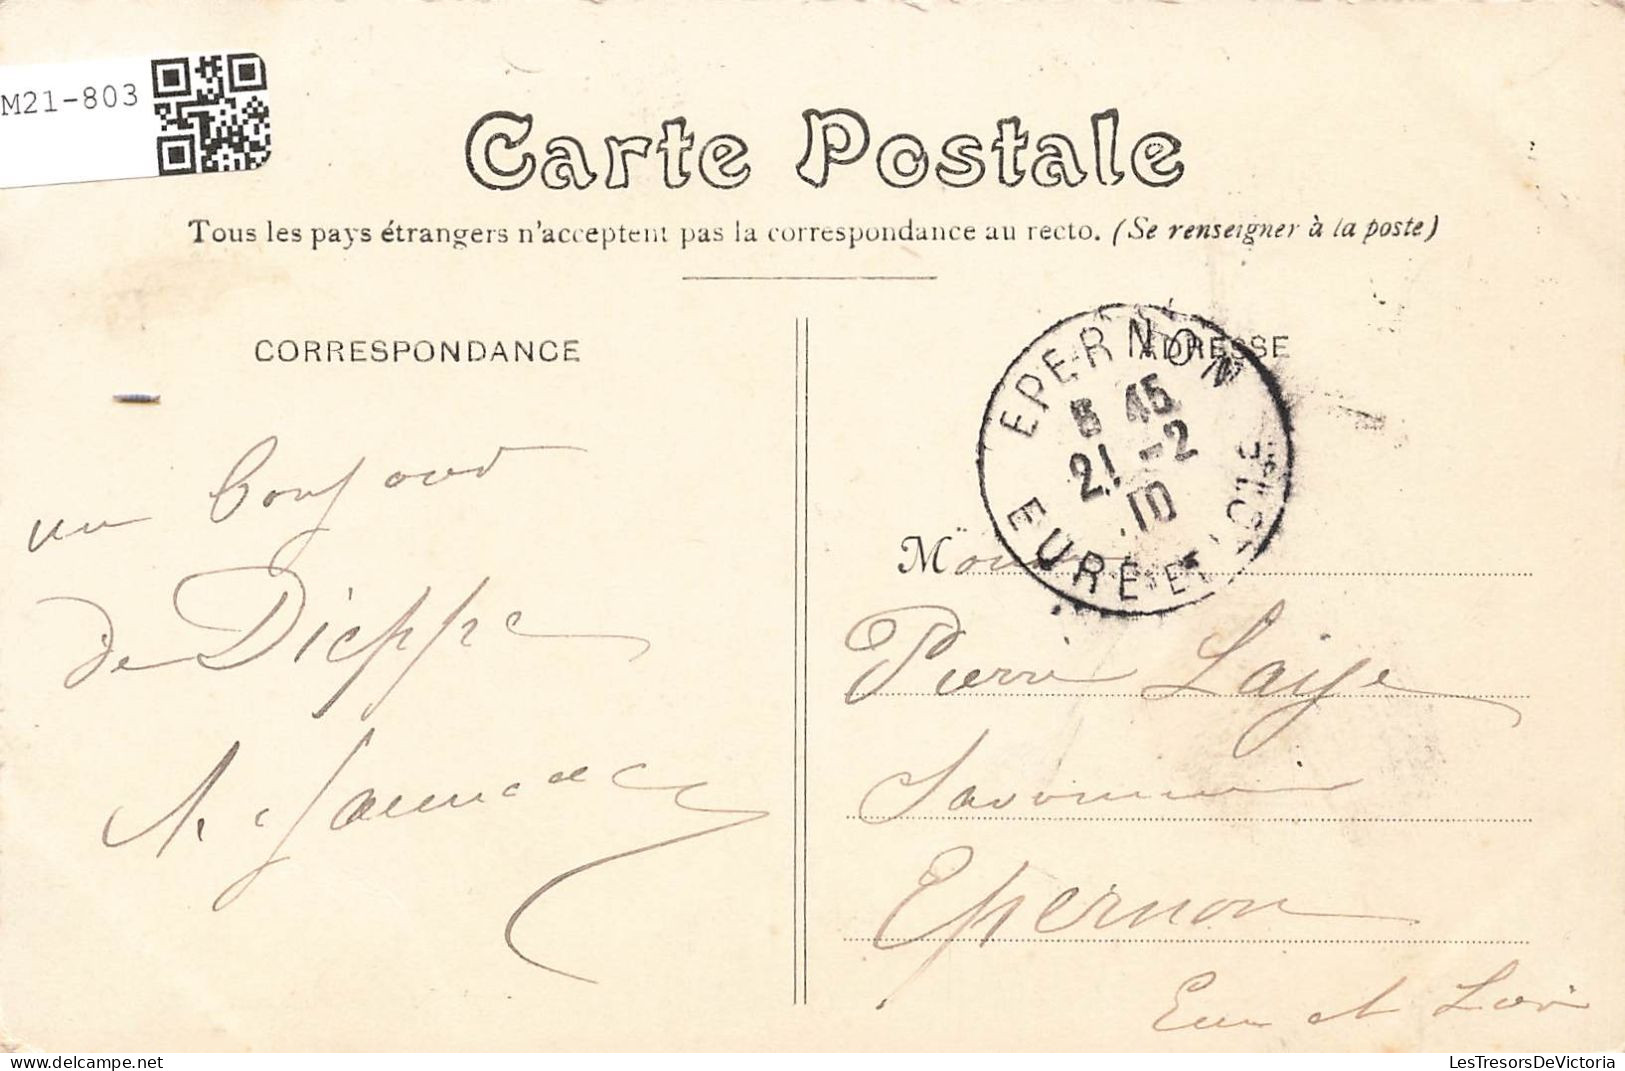 M21-803
Carte Postale
Tous les pays étrangers n'acceptent pas la correspondance au recto. (Se renseigner à la poste)
CORRESPONDANCE
ADRESSE
EPERNON
45
21 -2
10
EURE ET LOIR
un bonjour
de Dieppe
M
Pierre Laije
Epernon
Eure et Loir
LesTresorsDeVictoria